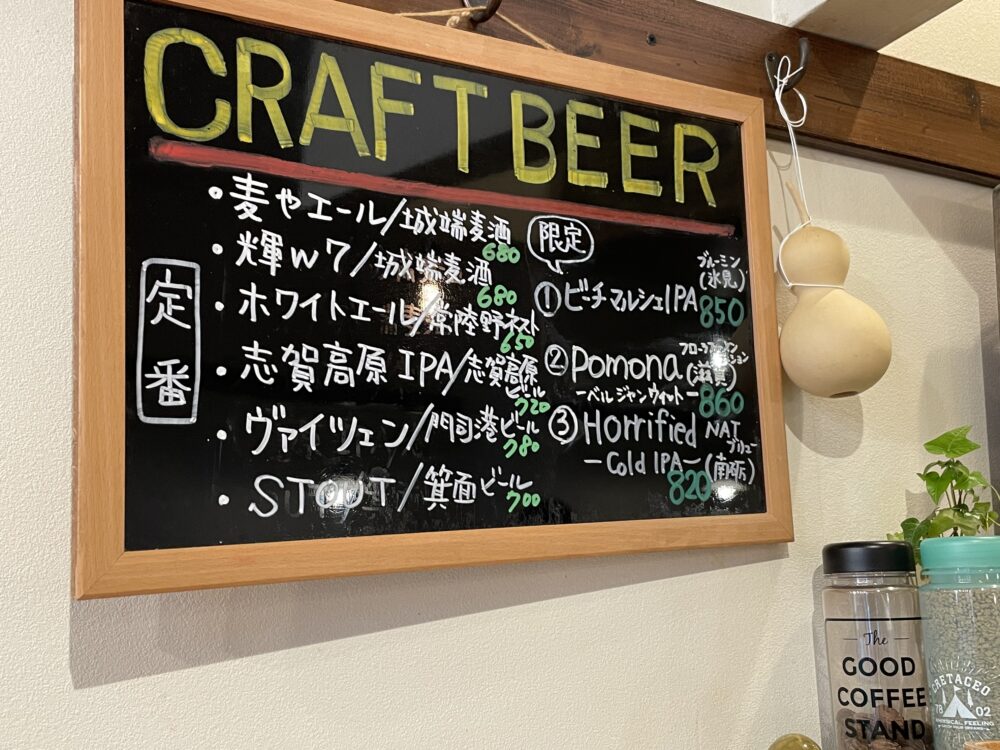 CRAFT BEER
定番
・麦やエール/城端麦酒
680
・輝W7/城端麦酒
680
・ホワイトエール/常陸野ネスト
650
・志賀高原 IPA/志賀高原
ビール
720
・ヴァイツェン/門司港ビール
780
・STOUT/箕面ビール
700
限定
ブルーミン
(氷見)
①ビーチマルシェIPA
850
②Pomona
(滋賀)
-ベルジャンウィット-
860
③Horrified
NAT
ブリュー
-Cold IPA-(南砺)
820
The
GOOD
COFFEE
STAND
CRETACEO
78 02